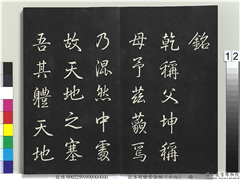 銘
乾稱父坤稱
母予茲藐焉
乃混然中處
故天地之塞
吾其體天地
12